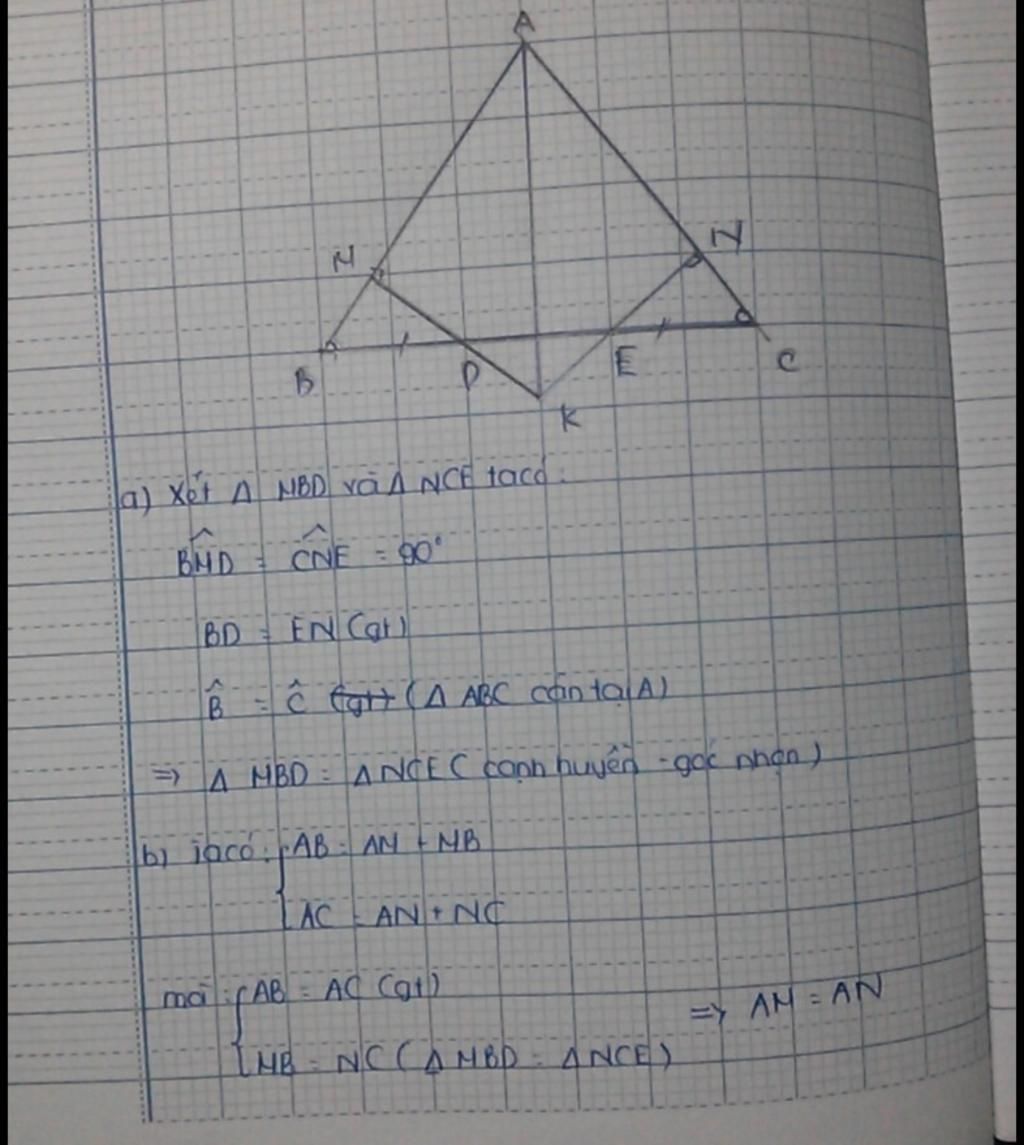 A
M
N
B
D
E
C
K
a) Xét Δ MBD và Δ NCE ta có:
BM̂D = CN̂E = 90°
BD = EN (gt)
B̂ = Ĉ (gt) (Δ ABC cân tại A)
=> Δ MBD = Δ NCE (cạnh huyền - góc nhọn)
b) Ta có: { AB = AM + MB
AC = AN + NC
mà: { AB = AC (gt)
=> AM = AN
MB = NC (Δ MBD = Δ NCE)